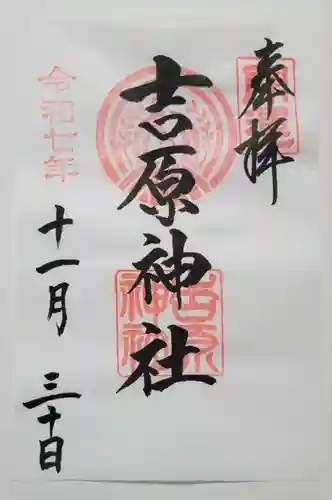 奉拝
吉原神社
令和七年
十一月 三十日